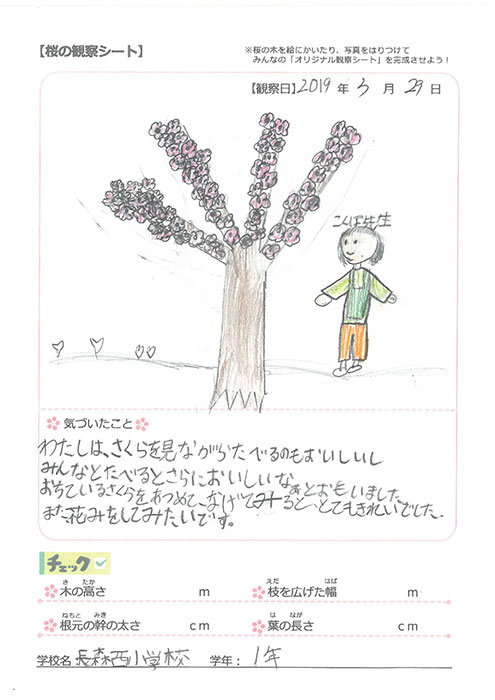 【桜の観察シート】
※桜の木を絵にかいたり、写真をはりつけて
みんなの「オリジナル観察シート」を完成させよう！
【観察日】2019年3月29日
こくぼ先生
気づいたこと
わたしは、さくらを見ながらたべるのもおいしいし
みんなとたべるとさらにおいしいなぁとおもいました。
おちているさくらをあつめて、なげてみると、とてもきれいでした。
また花みをしてみたいです。
チェック
木の高さ m
枝を広げた幅 m
根元の幹の太さ cm
葉の長さ cm
学校名 長森西小学校 学年： 1年